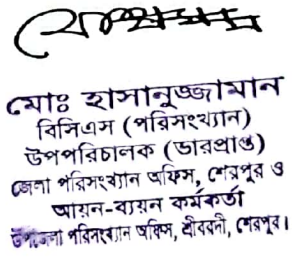 মোঃ হাসানুজ্জামান
বিসিএস (পরিসংখ্যান)
উপপরিচালক (ভারপ্রাপ্ত)
জেলা পরিসংখ্যান অফিস, শেরপুর ও
আয়ন-ব্যয়ন কর্মকর্তা
উপজেলা পরিসংখ্যান অফিস, শ্রীবরদী, শেরপুর।